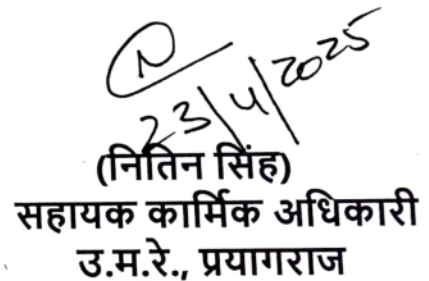 N
23/4/2025
(नितिन सिंह)
सहायक कार्मिक अधिकारी
उ.म.रे., प्रयागराज